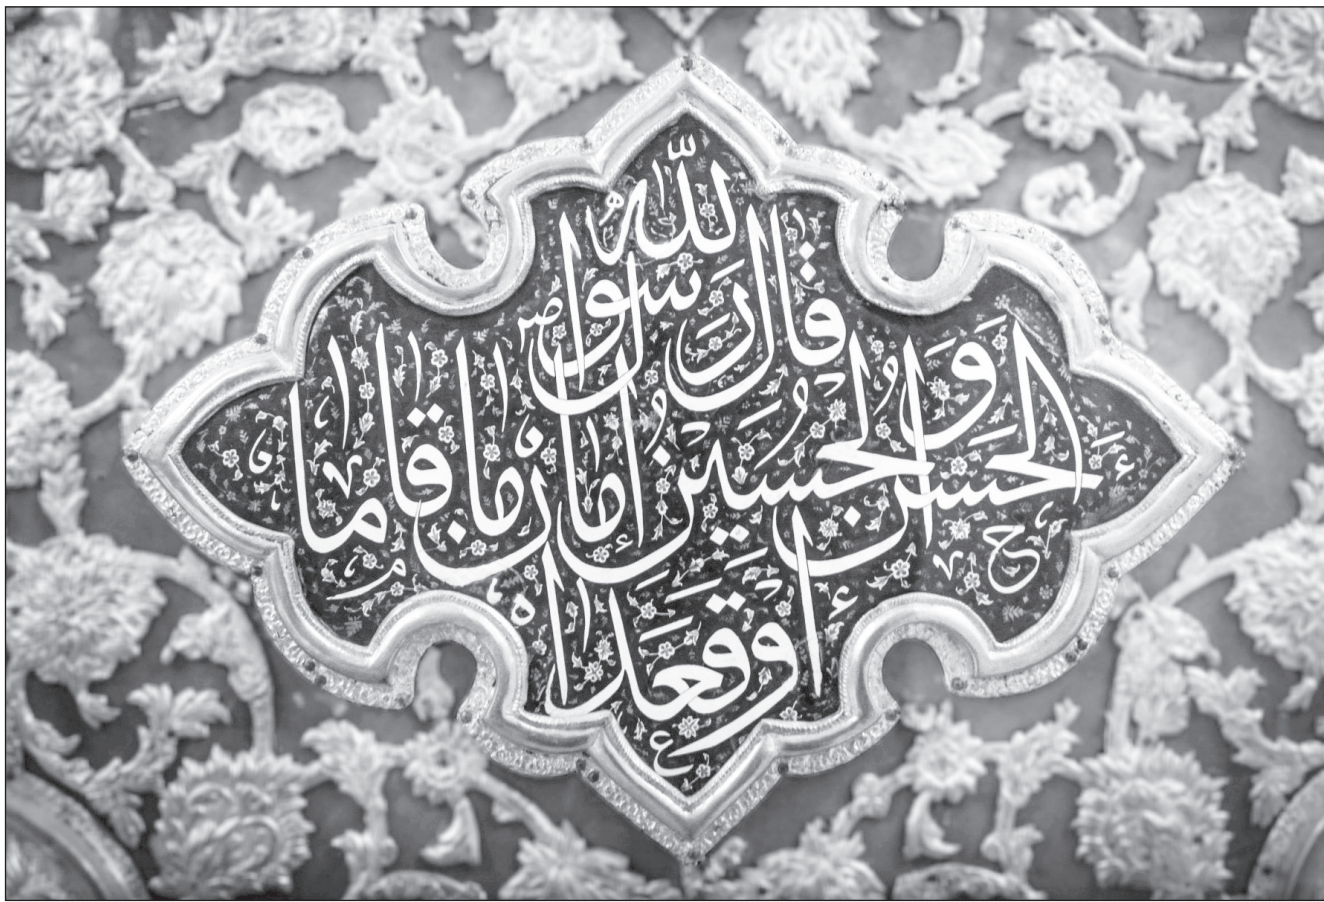 قال رسول الله ص
الحسن و الحسین امامان قاما
او قعدا